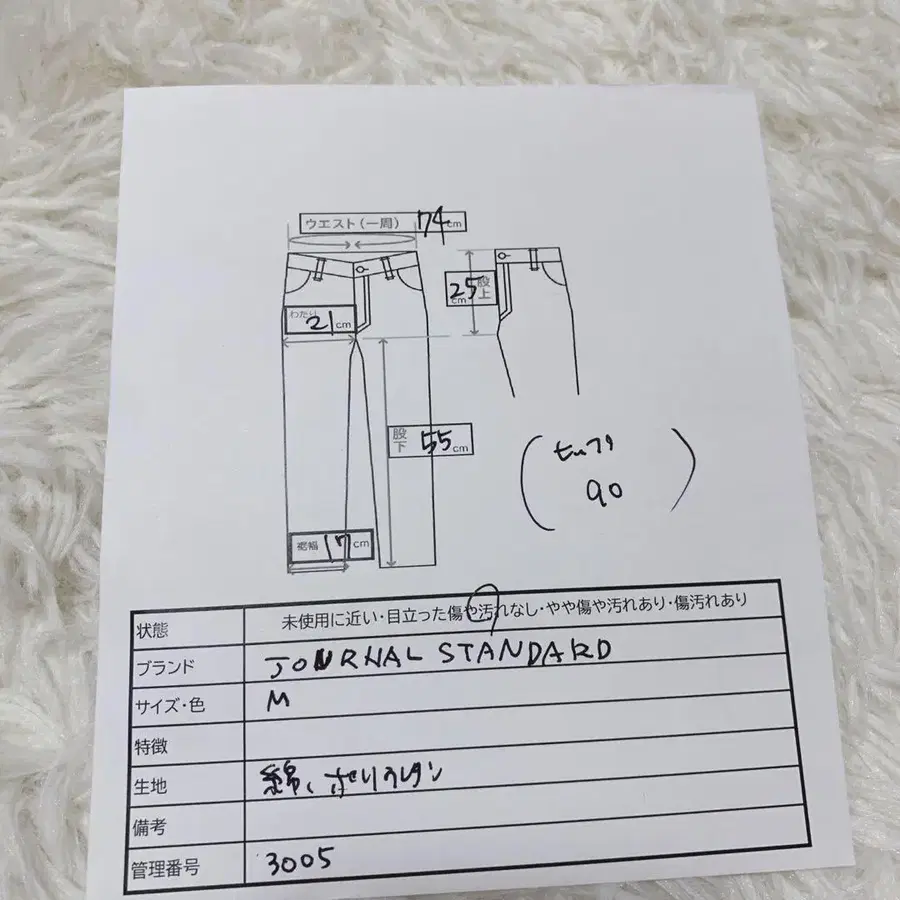 ウエスト(一周) 74cm
25cm 股上
わたり 21cm
股下 55cm
ヒップ
90
裾幅 17cm
状態 未使用に近い・目立った傷や汚れなし・やや傷や汚れあり・傷汚れあり
ブランド JOURNAL STANDARD
サイズ・色 M
特徴
生地 綿、ポリウレタン
備考
管理番号 3005